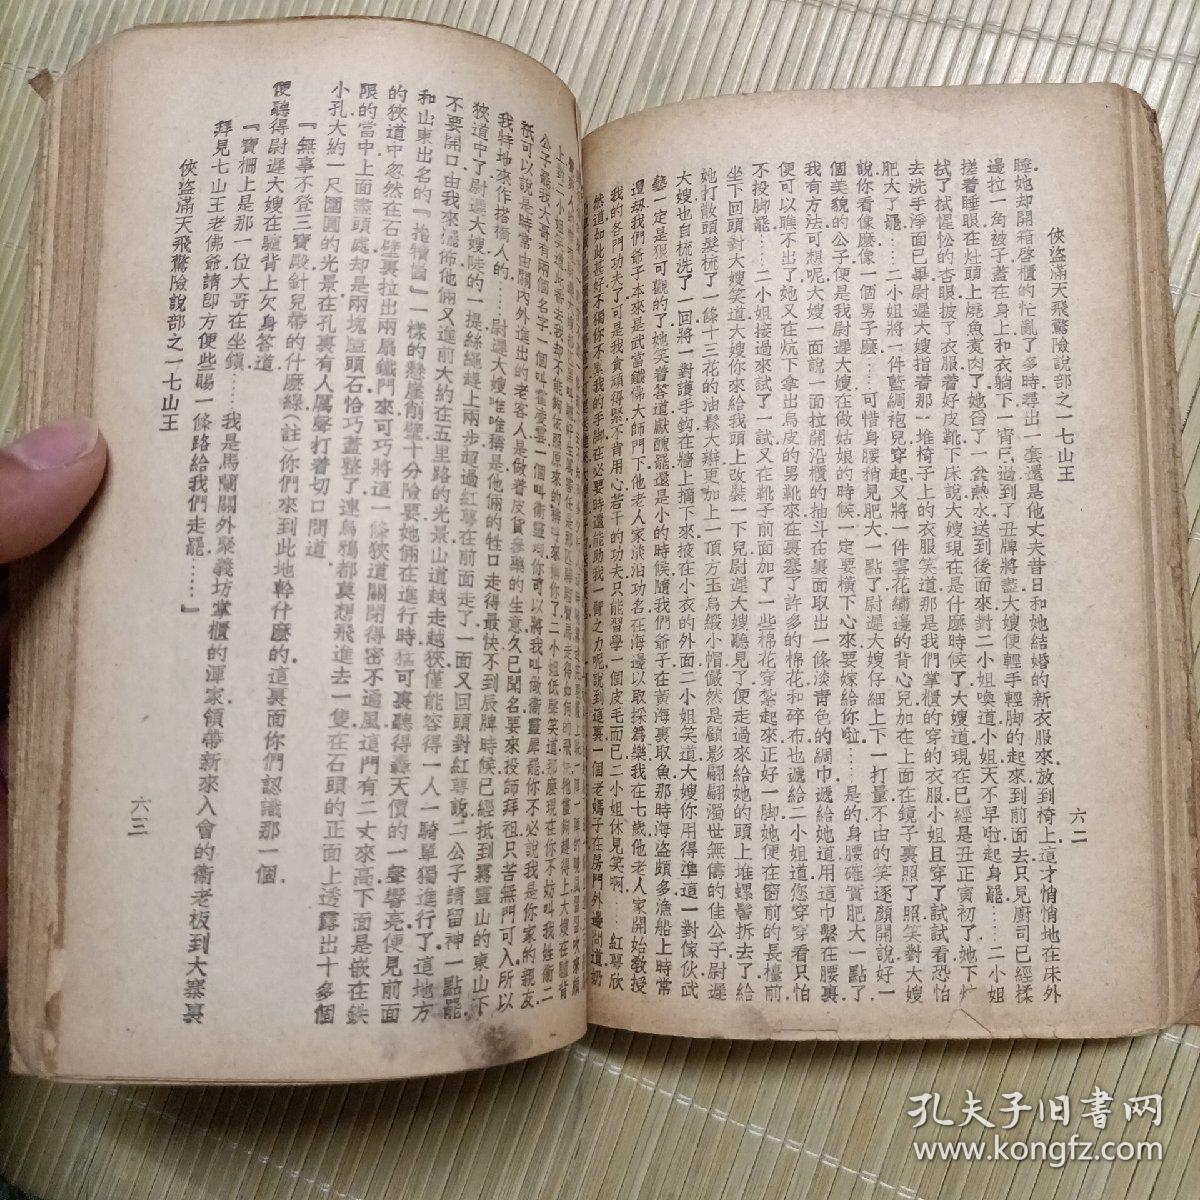 俠盜滿天飛驚險說部之一七山王
六二
睡她却開箱啓櫃的忙亂了多時尋出一套還是他丈夫昔日和她結婚的新衣服來放到椅上這才悄悄地在床外
邊拉一角被子蓋在身上和衣躺下一宵已過到了丑牌將盡大嫂便輕手輕脚的起來到前面去只見廚司已經揉
搓着睡眼在灶頭上燒魚煑肉了她舀了一盆熱水送到後面來對二小姐喚道小姐天不早啦起身罷……二小姐
拭了拭惺忪的杏眼披了衣服着好皮靴下床說大嫂現在是什麼時候了大嫂道現在已經是丑正寅初了她下炕
去洗手淨面已畢尉遲大嫂指着那一堆椅子上的衣服笑道那是我們掌櫃的穿的衣服小姐且穿了試試看恐怕
肥大了罷……二小姐將一件藍綢袍兒穿起又將一件雲花繡邊的背心兒加在上面在鏡子裏照了照笑對大嫂
說你看像麼像一個男子麼……可惜身腰稍見肥大一點了尉遲大嫂仔細上下一打量不由的笑逐顏開說好一
個美貌的公子便是我尉遲大嫂在做姑娘的時候一定要橫下心來要嫁給你啦……是的身腰確實肥大一點了
我有方法可想呢大嫂一面說一面拉開沿櫃的抽斗在裏面取出一條淡青色的綢巾遞給她道用這巾繫在腰裏
便可以瞧不出了她又在炕下拿出烏皮的男靴來在裏塞了許多的棉花和碎布也遞給二小姐道您穿穿看只怕
不投脚罷……二小姐接過來試了一試又在靴子前面加了一些棉花穿紮起來正好一脚她便在窗前的長檯前
坐下回頭對大嫂笑道大嫂你來給我頭上改裝一下兒尉遲大嫂聽見了便走過來給她的頭上堆螺髻拆去了給
她打散頭髮梳了一條十三花的油鬆大辮更加上一頂方玉烏緞小帽儼然是顧影翩翩濁世無儔的佳公子尉遲
大嫂也自梳洗了一回將一對護手鈎在牆上摘下來掖在小衣的外面二小姐笑道大嫂你用得準這一對傢伙武
藝一定是狠可觀的了她笑着答道獻醜罷還是小的時候隨我們爺子在黃海裏取魚那時海盜頗多漁船上時常
遭刼我們爺子本來是武當鐵佛大師門下他老人家淡泊功名在海邊以取採爲樂我在七歲他老人家開始教授
我的各門功夫了可是我貪頑得緊不肯用心若干的功夫只能習學一個皮毛而已二小姐休見笑啊……紅蓴欣
然道如此甚好不獨你不累我的手脚在必要時還能助我一臂之力呢說到這裏一個老媽子在房門外邊問道奶
公子罷我大哥有兩個名字一個叫霍凌雲一個叫衞靈
祇可以說是時常由關內外進出的老客人是做着皮貨參藥的生意久已聞名要來投師拜祖只苦無門可入所以
我特地來作搭橋人的……尉遲大嫂唯稱是他倆的牲口走得最快不到辰牌時候已經抵到霧靈山的東山下
狹道中了尉遲大嫂陡的一提絲繩趕上兩步超過紅蓴在前面走了一面又回頭對紅蓴說二公子請留神一點罷
不要開口由我來擺佈他倆又進前大約在五里路的光景山道越走越狹僅能容得一人一騎單獨進行了這地方
和山東出名的『拖犢崮』一樣的懸崖削壁十分險要她倆在進行時猛可裏聽得轟天價的一聲響亮便見前面
的狹道中忽然在石壁裏拉出兩扇鐵門來可巧將這一條狹道關閉得密不通風這門有二丈來高下面是嵌在鉄
限的當中上面盡頭處却是兩塊壓頭石恰巧蓋整了連烏鴉都莫想飛進去一隻在石頭的正面上透露出十多個
小孔大約一尺圍圓的光景在孔裏有人厲聲打着切口問道
『無事不登三寶殿針兒帶的什麼綠（註）你們來到此地幹什麼的這裏面你們認識那一個
便聽得尉遲大嫂在驢背上欠身答道
『寶柵上是那一位大哥在坐鎮……我是馬蘭關外聚義坊掌櫃的渾家領帶新來入會的衞老板到大寨裏
拜見七山王老佛爺請卽方便些賜一條路給我們走罷……』
俠盜滿天飛驚險說部之一七山王
六三
孔夫子旧書网
www.kongfz.com